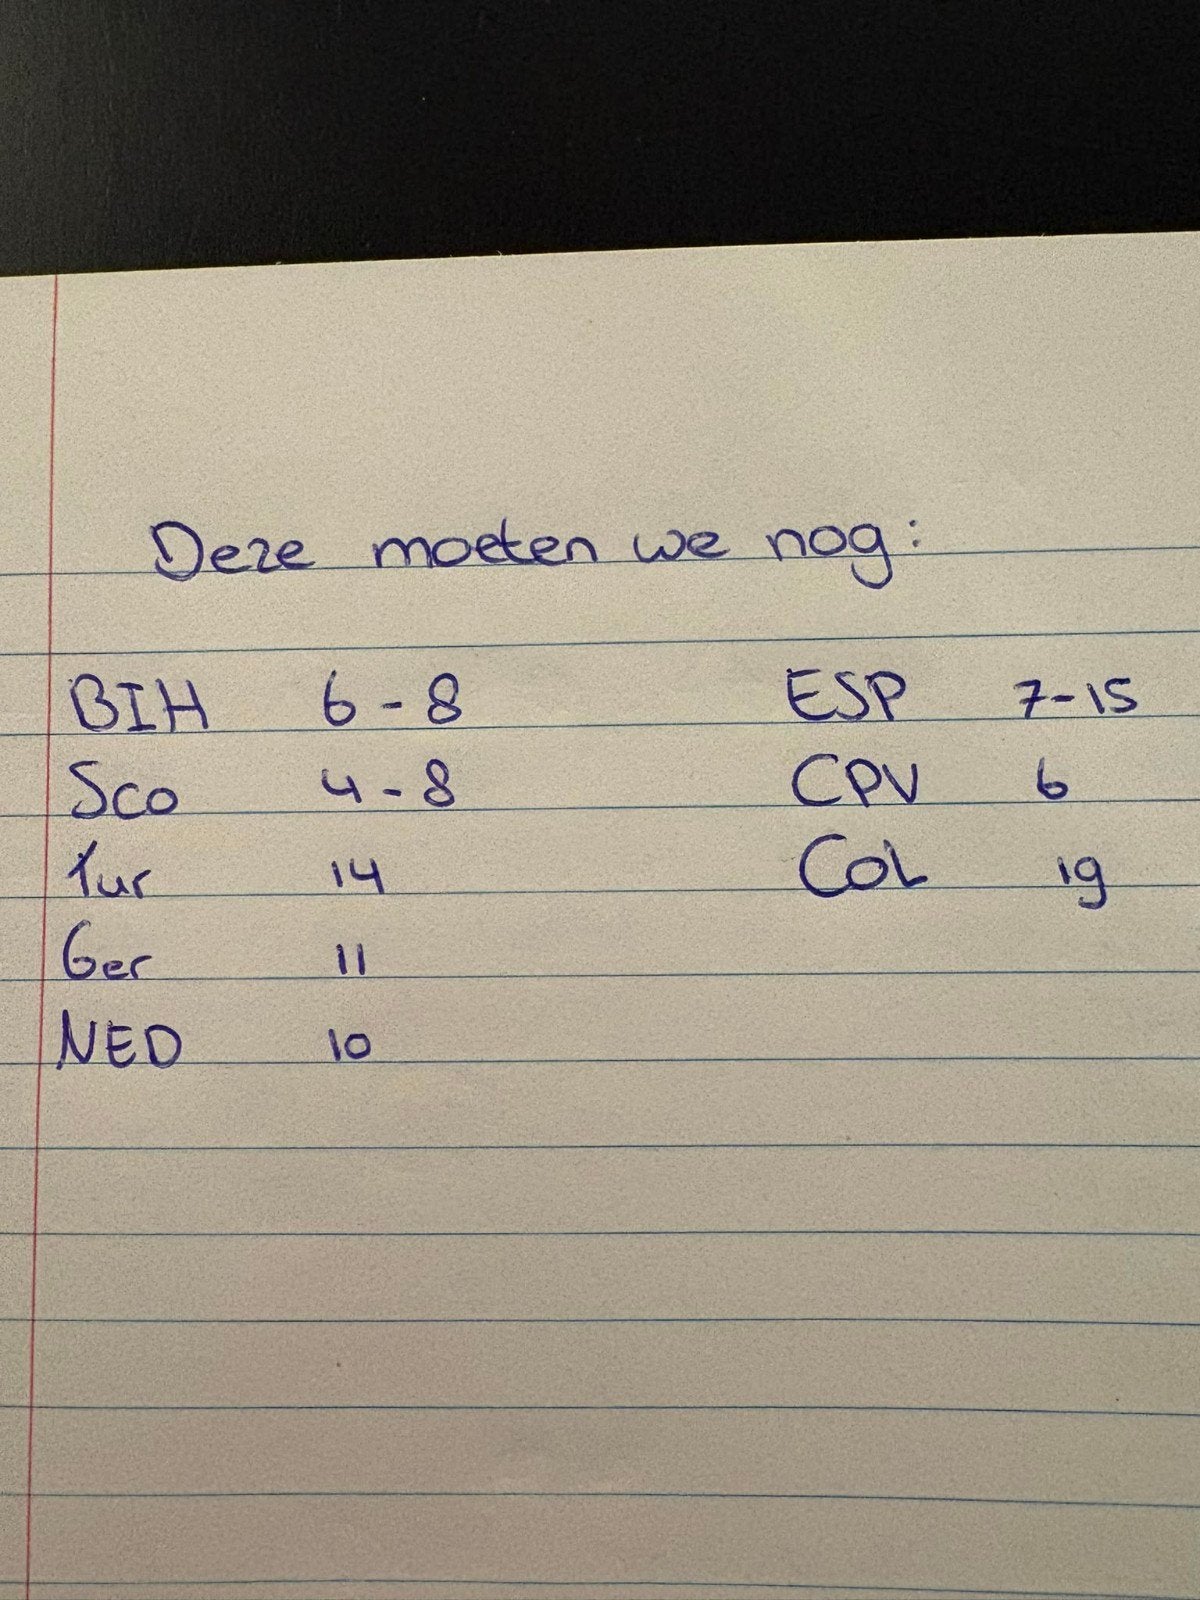 Deze moeten we nog:
BIH 6-8 ESP 7-15
Sco 4-8 CPV 6
Tur 14 COL 19
Ger 11
NED 10